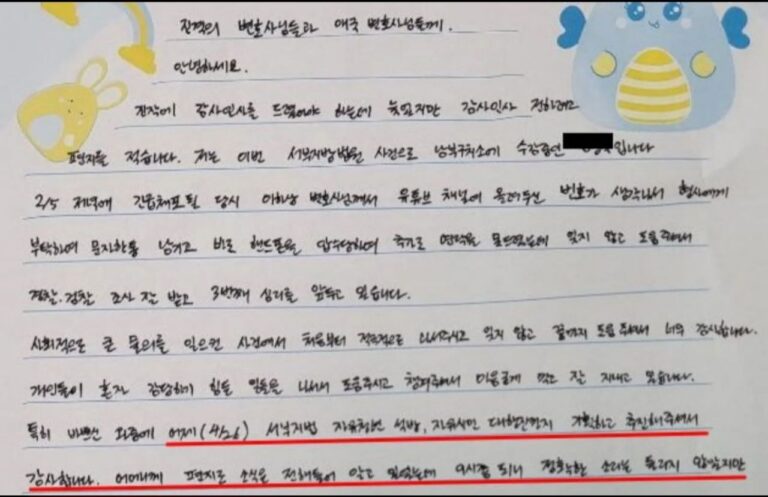 진격의 변호사님들과 애국 변호사님들께.
안녕하세요.
진작에 감사인사를 드렸어야 하는데 늦었지만 감사인사 전하려고
편지를 적습니다. 저는 이번 서부지방법원 사건으로 남부구치소에 수감중인 입니다
2/5 저녁에 긴급체포될 당시 이하상 변호사님께서 유튜브 채널에 올려두신 번호가 생각나서 형사에게
부탁하여 문자한통 남기고 바로 핸드폰을 압수당하여 추가로 연락을 못드렸는데 잊지 않고 도움주셔서
경찰.검찰 조사 잘 받고 3번째 심리를 앞두고 있습니다.
사회적으로 큰 물의를 일으킨 사건에서 처음부터 적극적으로 나서주시고 잊지 않고 끝까지 도움주셔서 너무 감사합니다.
개인들이 혼자 감당하기 힘들 일들을 나서서 도움주시고 챙겨주셔서 이웃같게 먹고 잘 지내고 있습니다.
특히 바쁘신 와중에 어제(4/26) 서부지법 자유청년 석방, 자유시민 대행진까지 기획하고 추진해주셔서
감사합니다. 어머니께 편지로 소식을 전해들어 알고 있었는데 9시쯤 되니 정확한 소리는 들리지 않았지만